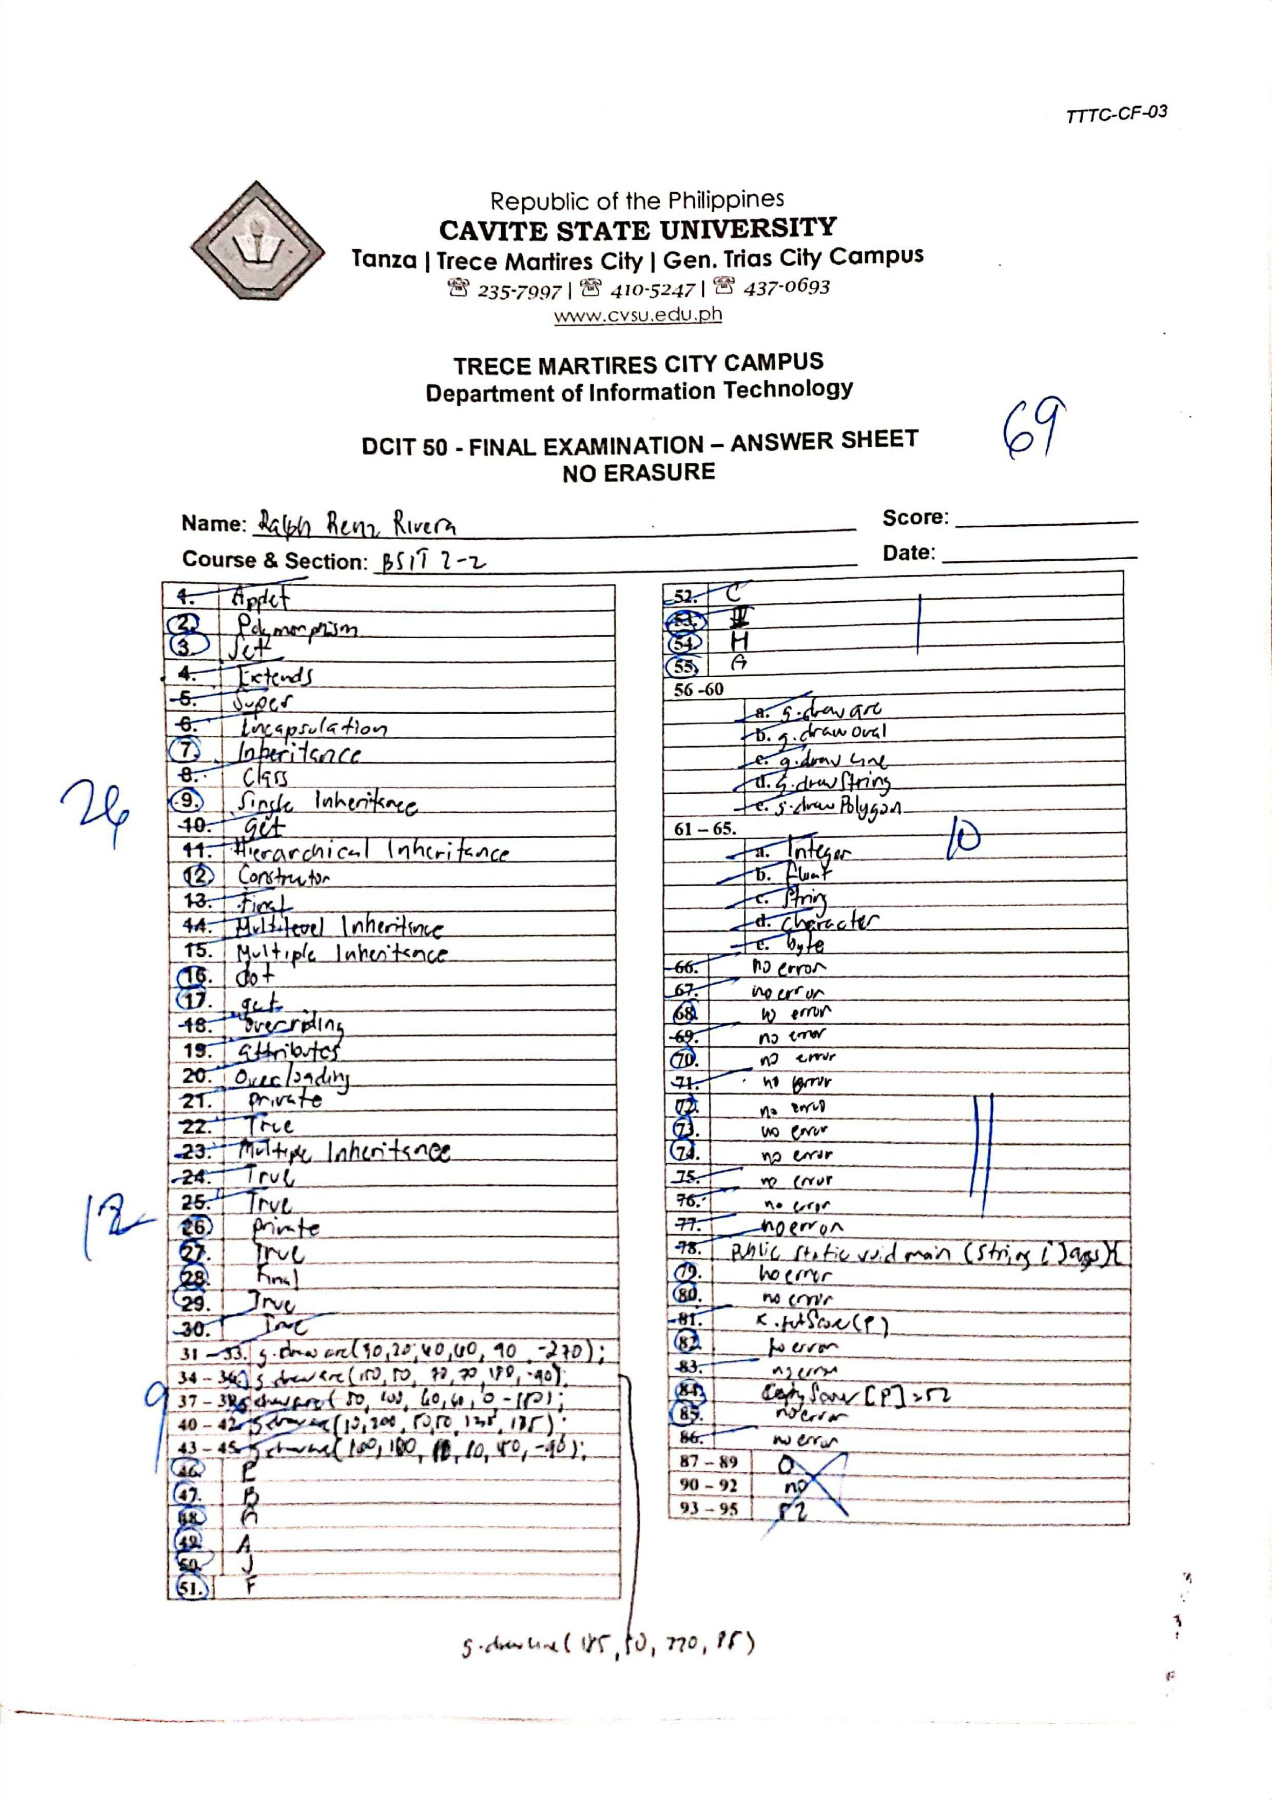 TTTC-CF-03
Republic of the Philippines
CAVITE STATE UNIVERSITY
Tanza | Trece Martires City | Gen. Trias City Campus
☏ 235-7997 | ☏ 410-5247 | ☏ 437-0693
www.cvsu.edu.ph
TRECE MARTIRES CITY CAMPUS
Department of Information Technology
DCIT 50 - FINAL EXAMINATION – ANSWER SHEET
NO ERASURE
69
Name: Ralph Renz Rivera
Score:
Course & Section: BSIT 2-2
Date:
1. Applet
2. Polymorphism
3. Set
4. Extends
5. Super
6. Encapsulation
7. Inheritance
8. Class
9. Single Inheritance
10. get
11. Hierarchical Inheritance
12. Constructor
13. Final
14. Multilevel Inheritance
15. Multiple Inheritance
16. dot
17. get
18. Overriding
19. attributes
20. Overloading
21. private
22. True
23. Multiple Inheritance
24. True
25. True
26. private
27. True
28. Final
29. True
30. True
31 – 33. g.draw arc(90,20,40,40, 90 -270);
34 – 36. g draw arc(150,50, 70,70, 180, -90);
37 – 39.
40 – 42.
43 – 45.
46. E
47. B
48. A
49. A
50. J
51. F
26
12
9
g.drawline(185,50, 220, 85)
52. C
53.
54. H
55. A
56 -60
a. g.draw arc
b. g.draw Oval
c. g.draw Line
d. g.draw String
e. g.draw Polygon
61 – 65.
a. Integer
b. float
c. String
d. character
e. byte
10
66. no error
67. no error
68. no error
69. no error
70. no error
71. no error
72. no error
73. no error
74. no error
75. no error
76. no error
77. no error
78. Public static void main (String []args){
79. no error
80. no error
81.
82. no error
83. no error
84.
85. no error
86. no error
87 – 89 O
90 – 92 no
93 – 95